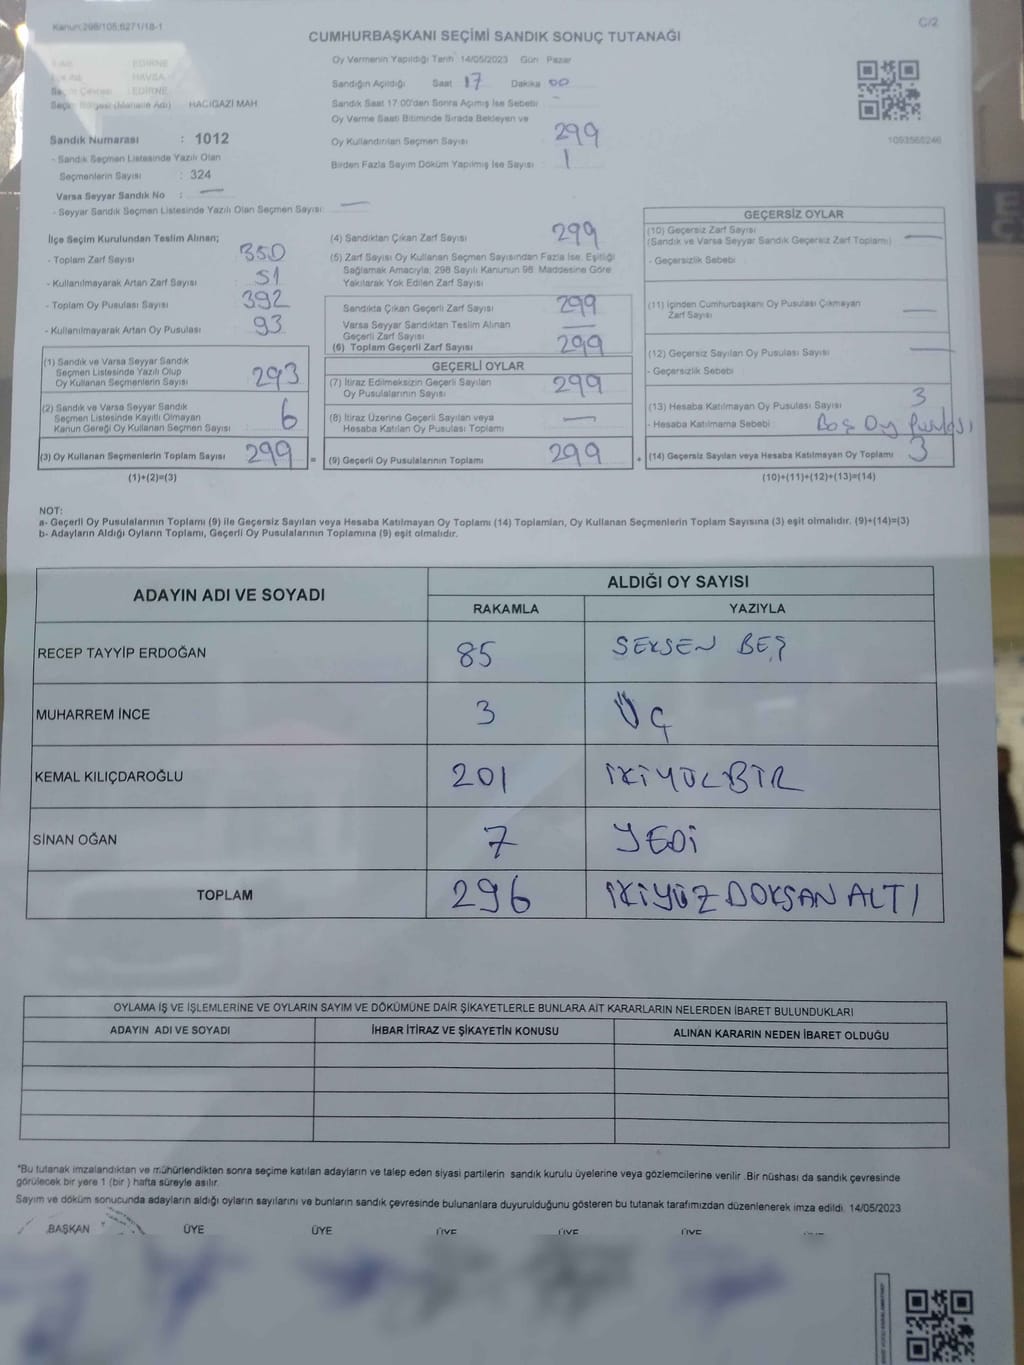 Kanun:298/105;6271/18-1
C/2
CUMHURBAŞKANI SEÇİMİ SANDIK SONUÇ TUTANAĞI
EDİRNE
HAVSA
EDİRNE
Seçim Bölgesi (Mahalle Adı) HACIGAZİ MAH
Sandık Numarası : 1012
- Sandık Seçmen Listesinde Yazılı Olan
Seçmenlerin Sayısı : 324
Varsa Seyyar Sandık No : —
- Seyyar Sandık Seçmen Listesinde Yazılı Olan Seçmen Sayısı: —
Oy Vermenin Yapıldığı Tarih 14/05/2023 Gün Pazar
Sandığın Açıldığı Saat 17 Dakika 00
Sandık Saat 17:00'den Sonra Açımış İse Sebebi: —
Oy Verme Saati Bitiminde Sırada Bekleyen ve
Oy Kullandırılan Seçmen Sayısı 299
Birden Fazla Sayım Döküm Yapılmış İse Sayısı 1
1093565246
İlçe Seçim Kurulundan Teslim Alınan;
- Toplam Zarf Sayısı 350
- Kullanılmayarak Artan Zarf Sayısı 51
- Toplam Oy Pusulası Sayısı 392
- Kullanılmayarak Artan Oy Pusulası 93
(1) Sandık ve Varsa Seyyar Sandık
Seçmen Listesinde Yazılı Olup
Oy Kullanan Seçmenlerin Sayısı 293
(2) Sandık ve Varsa Seyyar Sandık
Seçmen Listesinde Kayıtlı Olmayan
Kanun Gereği Oy Kullanan Seçmen Sayısı 6
(3) Oy Kullanan Seçmenlerin Toplam Sayısı 299 =
(1)+(2)=(3)
(4) Sandıktan Çıkan Zarf Sayısı 299
(5) Zarf Sayısı Oy Kullanan Seçmen Sayısından Fazla İse, Eşitliği
Sağlamak Amacıyla; 298 Sayılı Kanunun 98. Maddesine Göre
Yakılarak Yok Edilen Zarf Sayısı
Sandıkta Çıkan Geçerli Zarf Sayısı 299
Varsa Seyyar Sandıktan Teslim Alınan
Geçerli Zarf Sayısı —
(6) Toplam Geçerli Zarf Sayısı 299
GEÇERLİ OYLAR
(7) İtiraz Edilmeksizin Geçerli Sayılan
Oy Pusulalarının Sayısı 299
(8) İtiraz Üzerine Geçerli Sayılan veya
Hesaba Katılan Oy Pusulası Toplamı —
(9) Geçerli Oy Pusulalarının Toplamı 299 +
GEÇERSİZ OYLAR
(10) Geçersiz Zarf Sayısı
(Sandık ve Varsa Seyyar Sandık Geçersiz Zarf Toplamı) —
- Geçersizlik Sebebi
(11) İçinden Cumhurbaşkanı Oy Pusulası Çıkmayan
Zarf Sayısı —
(12) Geçersiz Sayılan Oy Pusulası Sayısı —
- Geçersizlik Sebebi
(13) Hesaba Katılmayan Oy Pusulası Sayısı 3
- Hesaba Katılmama Sebebi Boş Oy Puslası
(14) Geçersiz Sayılan veya Hesaba Katılmayan Oy Toplamı 3
(10)+(11)+(12)+(13)=(14)
NOT:
a- Geçerli Oy Pusulalarının Toplamı (9) ile Geçersiz Sayılan veya Hesaba Katılmayan Oy Toplamı (14) Toplamları, Oy Kullanan Seçmenlerin Toplam Sayısına (3) eşit olmalıdır. (9)+(14)=(3)
b- Adayların Aldığı Oyların Toplamı, Geçerli Oy Pusulalarının Toplamına (9) eşit olmalıdır.
ADAYIN ADI VE SOYADI ALDIĞI OY SAYISI
RAKAMLA YAZIYLA
RECEP TAYYİP ERDOĞAN 85 SEKSEN BEŞ
MUHARREM İNCE 3 ÜÇ
KEMAL KILIÇDAROĞLU 201 İKİYÜZBİR
SİNAN OĞAN 7 YEDİ
TOPLAM 296 İKİYÜZ DOKSAN ALTI
OYLAMA İŞ VE İŞLEMLERİNE VE OYLARIN SAYIM VE DÖKÜMÜNE DAİR ŞİKAYETLERLE BUNLARA AİT KARARLARIN NELERDEN İBARET BULUNDUKLARI
ADAYIN ADI VE SOYADI İHBAR İTİRAZ VE ŞİKAYETİN KONUSU ALINAN KARARIN NEDEN İBARET OLDUĞU
*Bu tutanak imzalandıktan ve mühürlendikten sonra seçime katılan adayların ve talep eden siyasi partilerin sandık kurulu üyelerine veya gözlemcilerine verilir. Bir nüshası da sandık çevresinde
görülecek bir yere 1 (bir ) hafta süreyle asılır.
Sayım ve döküm sonucunda adayların aldığı oyların sayılarını ve bunların sandık çevresinde bulunanlara duyurulduğunu gösteren bu tutanak tarafımızdan düzenlenerek imza edildi. 14/05/2023
BAŞKAN ÜYE ÜYE ÜYE ÜYE ÜYE